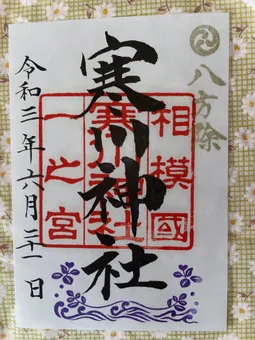 八方除
相模國
寒川神社
寒川神社
一之宮
令和三年六月二十一日